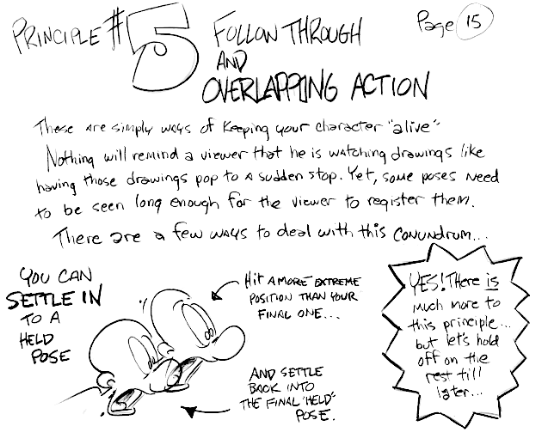 PRINCIPLE #5 FOLLOW THROUGH
AND
OVERLAPPING ACTION
Page 15
These are simply ways of keeping your character "alive".
Nothing will remind a viewer that he is watching drawings like
having those drawings pop to a sudden stop. Yet, some poses need
to be seen long enough for the viewer to register them.
There are a few ways to deal with this conundrum...
YOU CAN
SETTLE IN
TO A
HELD
POSE
HIT A MORE EXTREME
POSITION THAN YOUR
FINAL ONE...
AND SETTLE
BACK INTO
THE FINAL "HELD"
POSE.
YES! THERE is
much more to
this principle...
but let's hold
off on the
rest till
later...